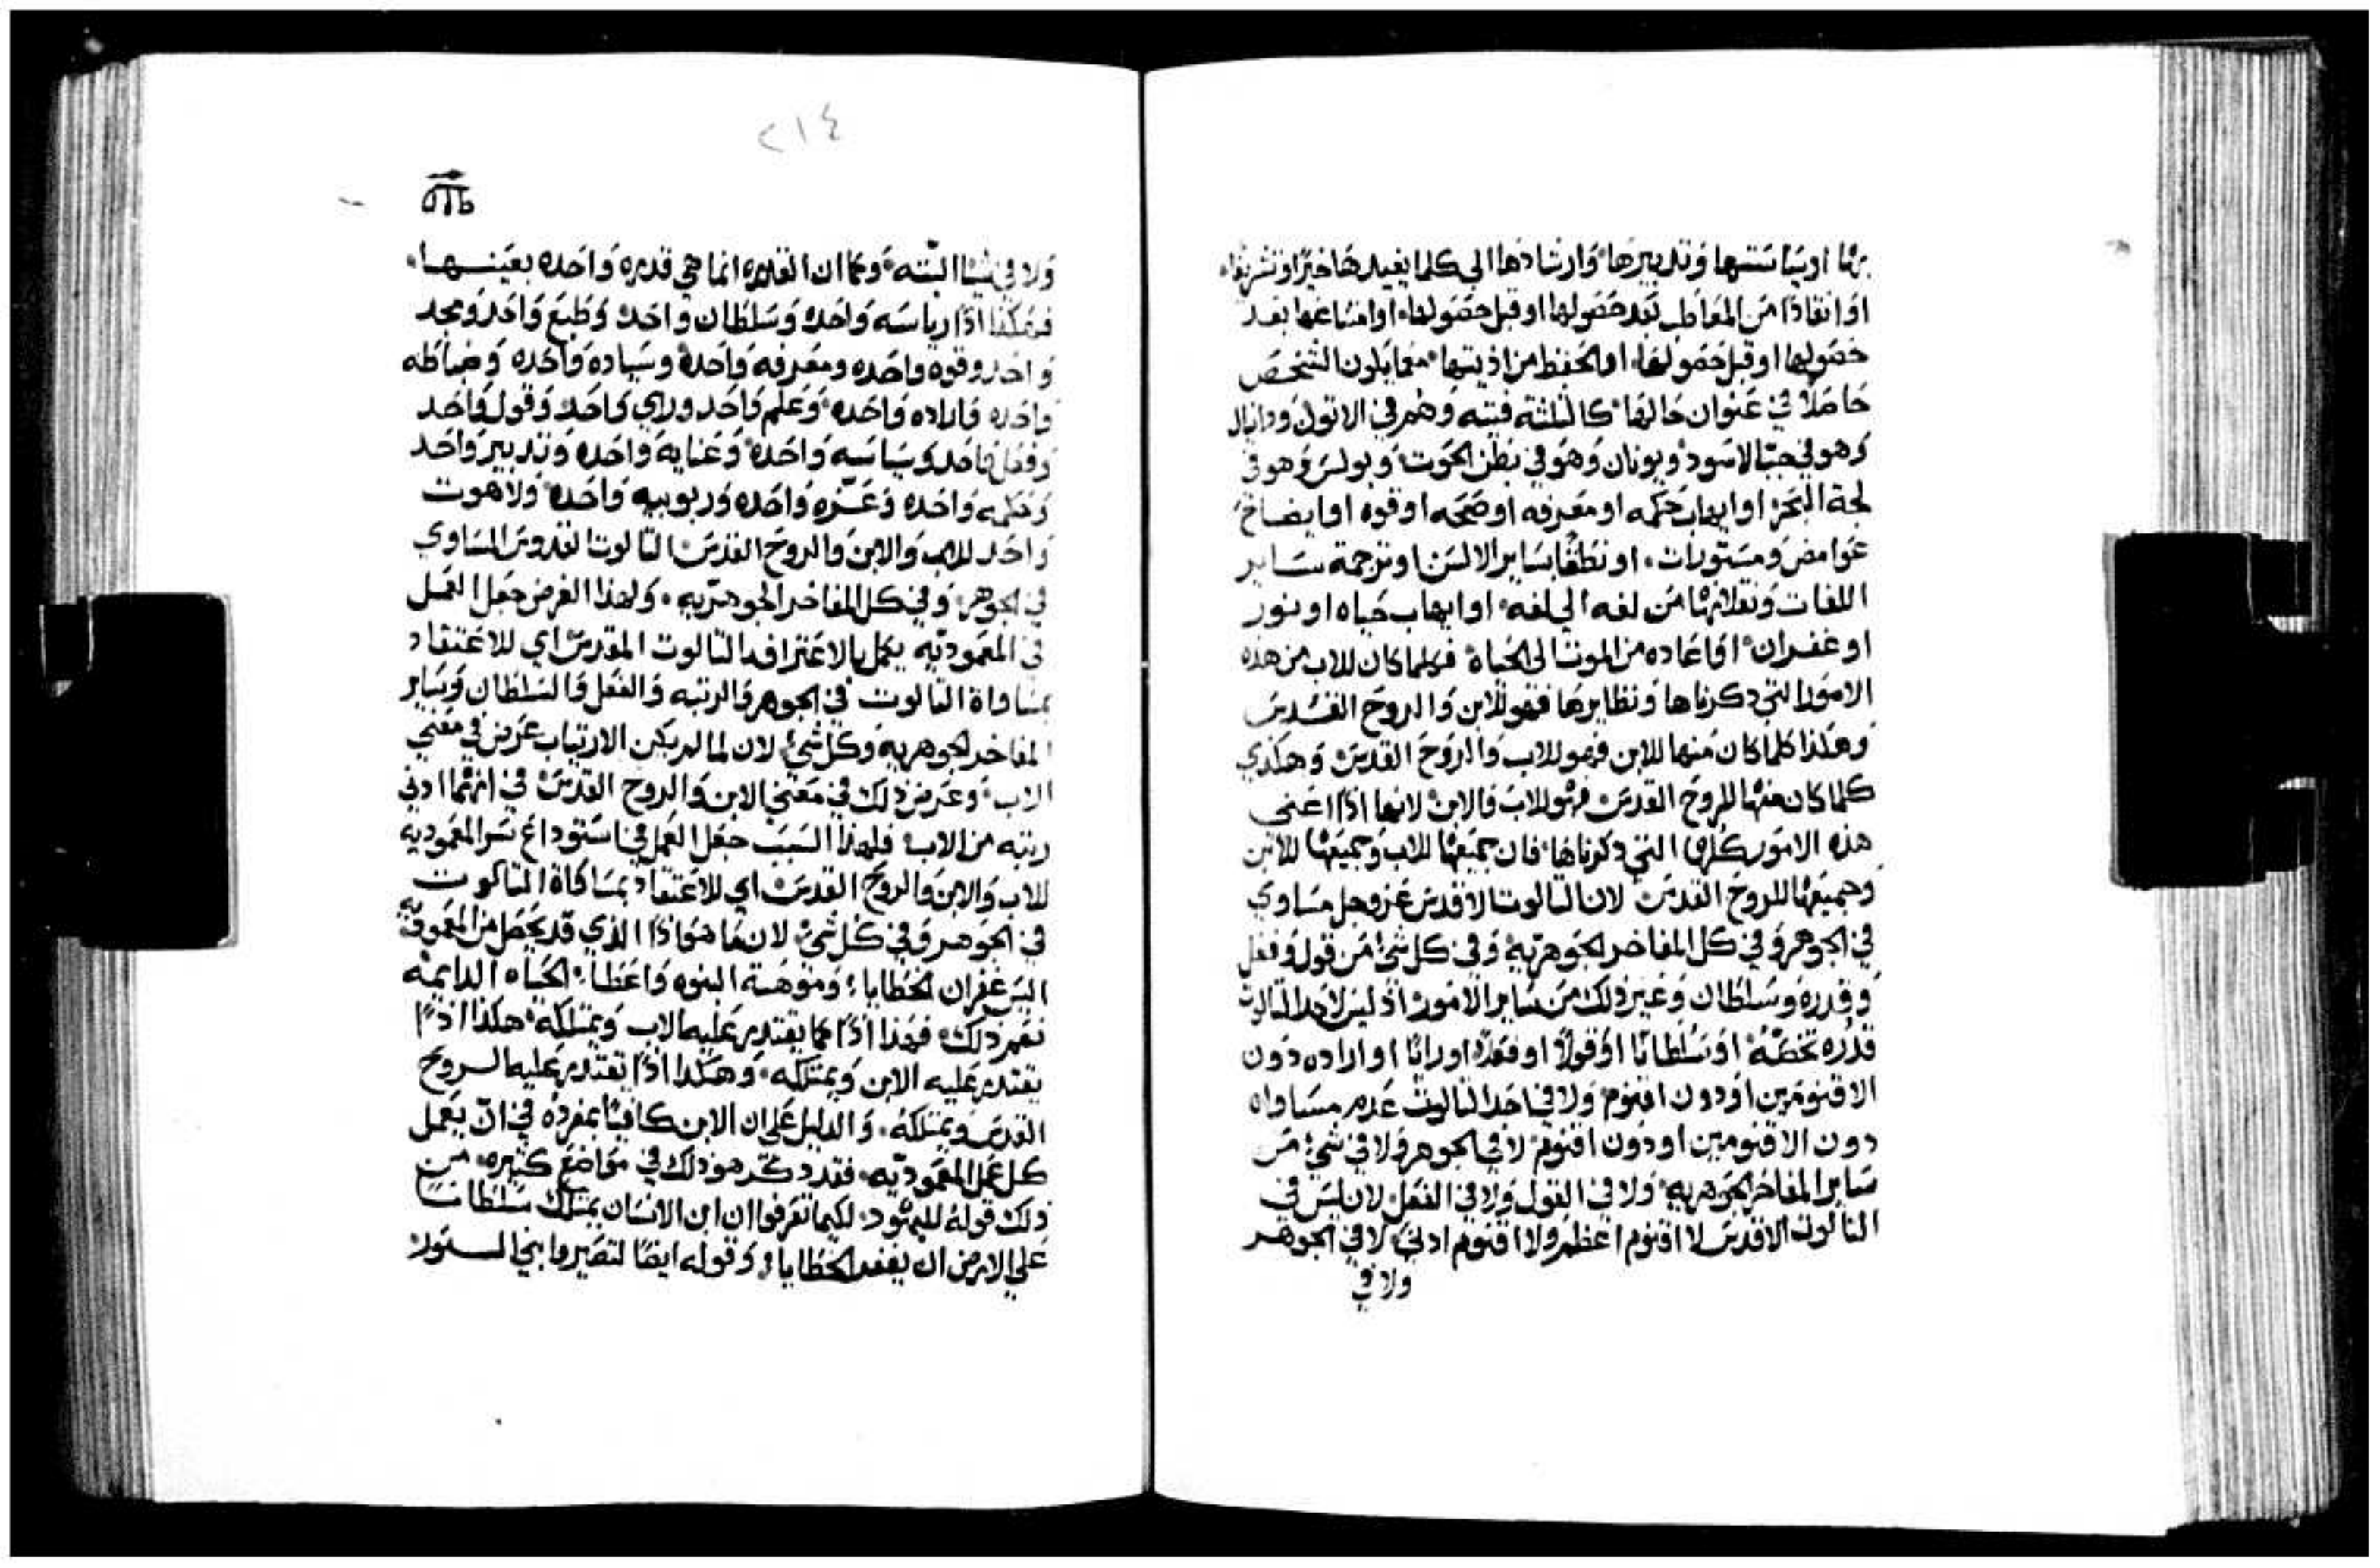 برنا اوسياستها وتدبيرها وارشادها الي كلما يفيدها خيرًا وتشريفًا
او انقاذا من المعاطب بعد حصولها او قبل حصولها او امتناعها بعد
حصولها او قبل حصولها او الحفظ من اذيتها مهما يكون الشخص
حاصلا في عنوان حالها كالثلثة فتيه وهم في الاتون ودانيال
وهو في جب الاسود ويونان وهو في بطن الحوت وبولس وهو في
لجة البحر او ايهاب حكمه او معرفه او صحه او قوه او ايضاح
غوامض ومستورات او نطقا بساير الالسن او ترجمة ساير
اللغات ونقلانها من لغه الي لغه او ايهاب حياه او نور
او غفران او اعاده من الموت الى الحياة فكلما كان للاب من هذه
الامور التي ذكرناها ونظايرها فهو للابن والروح القدس
وهكذا كلما كان منها للابن فهو للاب والروح القدس وهكذي
كلما كان منها للروح القدس فهو للاب والابن لانها اذا اعني
هذه الامور كلها التي ذكرناها فان جميعها للاب وجميعها للابن
وجميعها للروح القدس لان الثالوث الاقدس عز وجل مساوي
في الجوهر وفي كل المفاخر الجوهرية وفي كل شئ من قول وفعل
وقدره وسلطان وغير ذلك من ساير الامور اذ ليس لاحد الثالوث
قدره تخصه او سلطانا او قولا او فعلا او رايا او اراده دون
الاقنومين او دون اقنوم ولا في احد الثالوث عدم مساواه
دون الاقنومين او دون اقنوم لا في الجوهر ولا في شئ من
ساير المفاخر الجوهريه ولا في القول ولا في الفعل لان ليس في
الثالوث الاقدس لا اقنوم اعظم ولا اقنوم ادني لا في الجوهر
ولا في
٢١٤
ولا في شيا البته وكما ان القدره انما هي قدره واحده بعينها
فهكذا اذا رياسه واحده وسلطان واحد وطبع واحد ومجد
واحد وقوه واحده ومعرفه واحدة وسياده واحده وضباطه
واحده واراده واحده وعلم واحد وراي واحد وقول واحد
وفعل واحد وسياسه واحده وعنايه واحده وتدبير واحد
وحكمه واحده وعزه واحده وربوبيه واحده ولاهوت
واحد للاب والابن والروح القدس الثالوث القدوس المساوي
في الجوهر وفي كل المفاخر الجوهريه ولهذا الغرض جعل العمل
في المعموديه يكمل بالاعتراف بالثالوث المقدس اي للاعتقاد
بمساواة الثالوث في الجوهر والرتبه والفعل والسلطان وساير
المفاخر الجوهريه وكل شئ لان لما لم يكن الارتياب عرض في معني
الاب وعرض ذلك في معني الابن والروح القدس في انهما ادني
رتبه من الاب فلهذا السبب جعل العمل في استوداع سر المعموديه
للاب والابن والروح القدس اي للاعتقاد بمساواة الثالوث
في الجوهر وفي كل شئ لان ما هو اذا الذي قد يحصل من المعموديه
اليس غفران الخطايا وموهبة البنوه واعطا الحياه الدايمه
نعم ذلك فهذا اذا كما يقتدر عليه الاب ويمتلكه هكذا اذا
يقتدر عليه الابن ويمتلكه وهكذا اذا يقتدر عليه الروح
القدس ويمتلكه والدليل علي ان الابن كافيًا بمفرده في ان يعمل
كل عمل المعموديه فقد ذكر هو ذلك في مواضع كثيره من
ذلك قوله لليهود لكيما تعرفوا ان ابن الانسان يمتلك سلطانا
علي الارض ان يغفر الخطايا وقوله ايضا لتصيروا بني النور